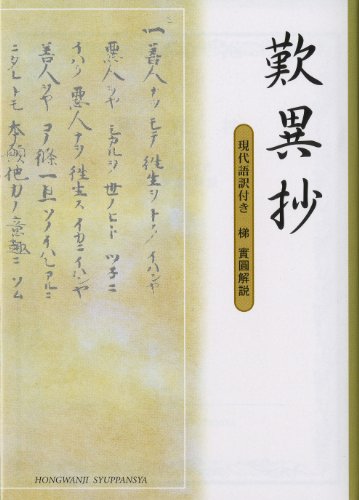 歎異抄
現代語訳付き 梯 實圓解説
一 善人ナヲモテ往生ヲトク イハンヤ
悪人ヲヤ シカルヲ 世ノヒト ツネニ
イハク 悪人ナヲ往生ス イカニイハンヤ
善人ヲヤ コノ條 一旦 ソノイハレアルニ
ニタレトモ 本願他力ノ意趣ニソム
HONGWANJI SYUPPANSYA